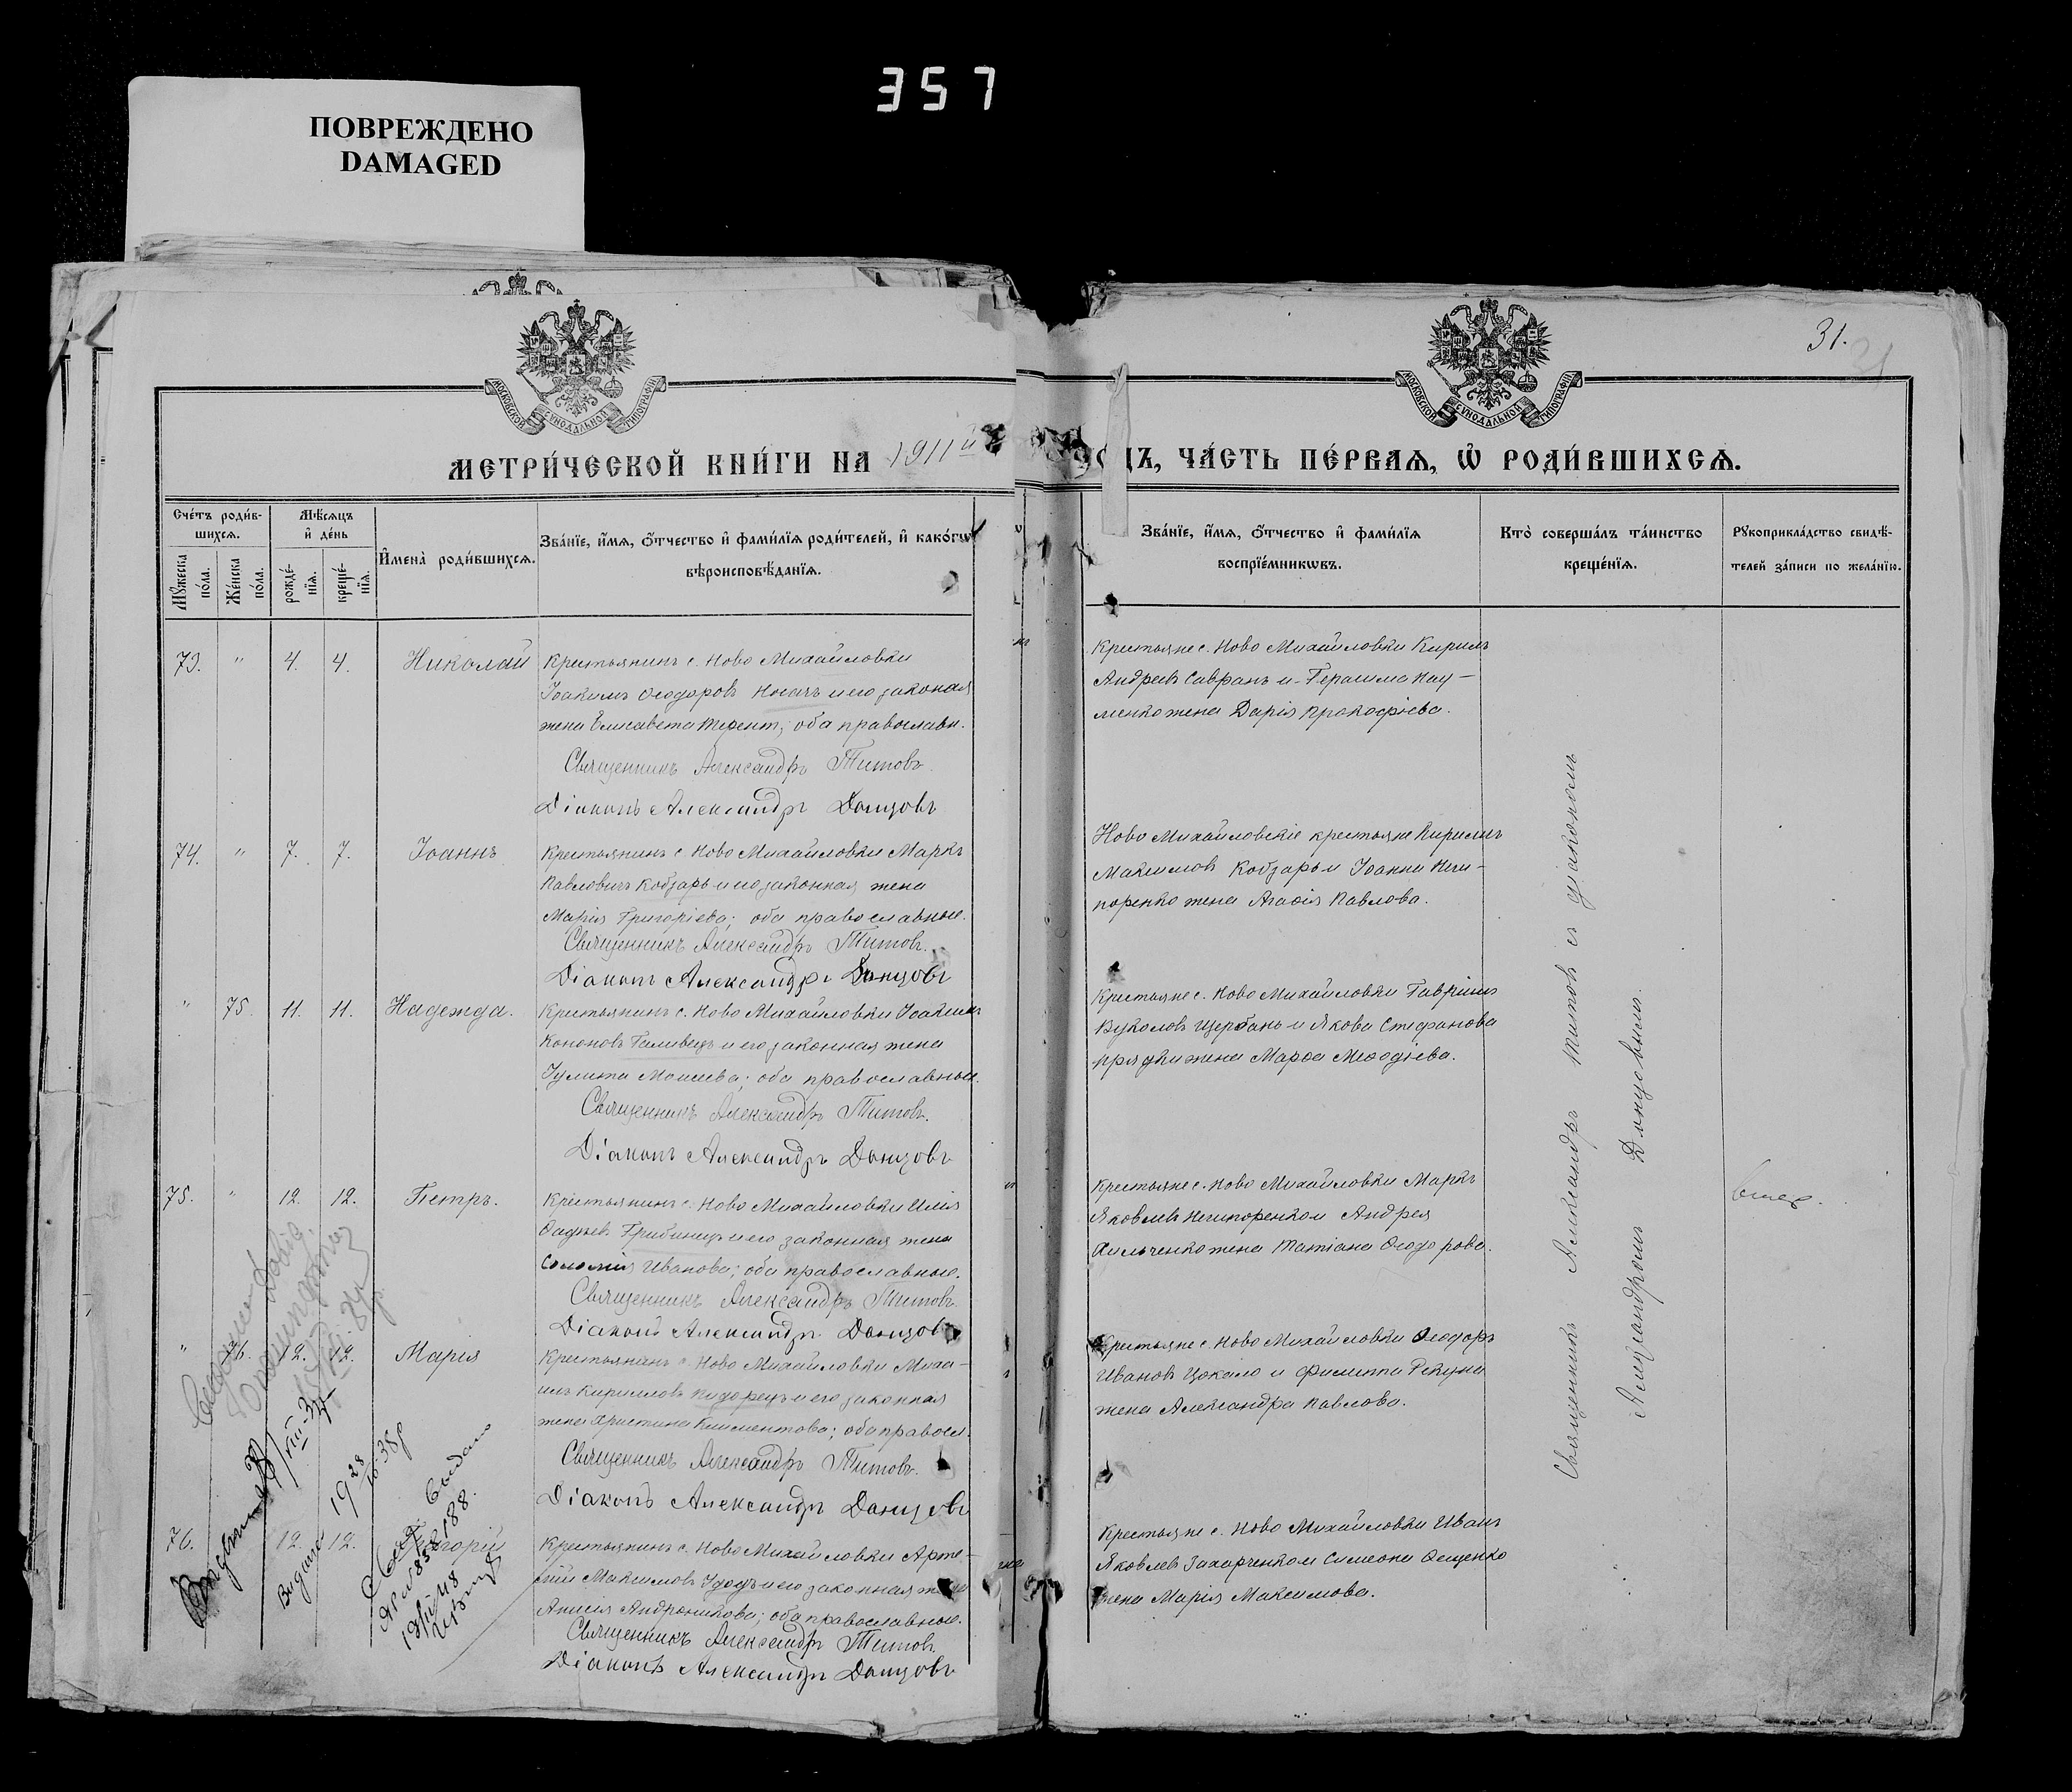 357
ПОВРЕЖДЕНО
DAMAGED
31.
31
МОСКОВСКОЙ СУНОДАЛЬНОЙ ТИПОГРАФІИ
МОСКОВСКОЙ СУНОДАЛЬНОЙ ТИПОГРАФІИ
МЕТРИ́ЧЕСКОЙ КНИ́ГИ НА 1911й
ЧА́СТЬ ПЕ́РВАѦ, Ѽ РОДИ́ВШИХСѦ.
Сче́тъ роди́в-
шихсѧ.
Мꙋ́жеска по́ла.
Же́нска по́ла.
Мѣ́сѧцъ
и҆ де́нь
рожде́-
нїѧ.
креще́-
нїѧ.
И҆мена̀ роди́вшихсѧ.
Зва́нїе, и҆́мѧ, ѻ҆́тчество и҆ фами́лїѧ роди́телей, и҆ како́гѡ
вѣроисповѣ́данїѧ.
Зва́нїе, и҆́мѧ, ѻ҆́тчество и҆ фами́лїѧ
воспрїе́мникѡвъ.
Кто̀ соверша́лъ та́инство
креще́нїѧ.
Рꙋкоприкла́дство свидѣ́-
телей за́писи по жела́нїю.
73. " 4. 4. Николай
Крестьянинъ с. Ново Михайловки
Іоакимъ Ѳеодоровъ Носачъ и его законая
жена Елисавета Терент; оба православн.
Священникъ Александръ Титовъ.
Діаконъ Александръ Донцовъ
Крестьяне с. Ново Михайловки Кирилъ
Андреевъ Савранъ и Герасима Нау-
менко жена Дарія Прокофіева.
74. " 7. 7. Іоаннъ
Крестьянинъ с. Ново Михайловки Маркъ
Павловичъ Кобзарь и его законная жена
Марія Григоріева; оба православные.
Священникъ Александръ Титовъ.
Діаконъ Александръ Донцовъ
Ново Михайловскіе крестьяне Кириллъ
Максимовъ Кобзарь и Іоанна Ничи-
поренко жена Агаѳія Павлова.
" 75. 11. 11. Надежда.
Крестьянинъ с. Ново Михайловки Іоакимъ
Кононовъ Галивецъ и его законная жена
Іулита Моисеева; оба православные.
Священникъ Александръ Титовъ.
Діаконъ Александръ Донцовъ
Крестьяне с. Ново Михайловки Гавріилъ
Вуколовъ Щербань и Якова Стефанова
Прядки жена Марѳа Меѳодіева.
75. " 12. 12. Петръ.
Крестьянинъ с. Ново Михайловки Илія
Ѳадѣев. Грибинецъ и его законная жена
Соломія Иванова; оба православные.
Священникъ Александръ Титовъ
Діаконъ Александръ Донцовъ
Крестьяне с. Ново Михайловки Маркъ
Яковлевъ Ничипоренко и Андрея
Хильченко жена Татіана Ѳеодорова.
" 76. 12. 12. Марія
Крестьянинъ с. Ново Михайловки Миха-
илъ Кирилловъ Пидорецъ и его законная
жена Христина Климентова; оба правосл.
Священникъ Александръ Титовъ.
Діаконъ Александръ Донцовъ
Крестьяне с. Ново Михайловки Ѳеодоръ
Ивановъ Цокало и Филиппа Рекуна
жена Александра Павлова.
76. 12. 12. Григорій
Крестьянинъ с. Ново Михайловки Арте-
мій Максимовъ Удодъ и его законная жена
Анисія Андроникова; оба православные.
Священникъ Александръ Титовъ
Діаконъ Александръ Донцовъ
Крестьяне с. Ново Михайловки Иванъ
Яковлевъ Захарченко и Симеона Ѳещенко
жена Марія Максимова.
Священникъ Александръ Титовъ съ діакономъ
Александромъ Донцовымъ.
Видано 19 28/10 38р
Выдано
188.